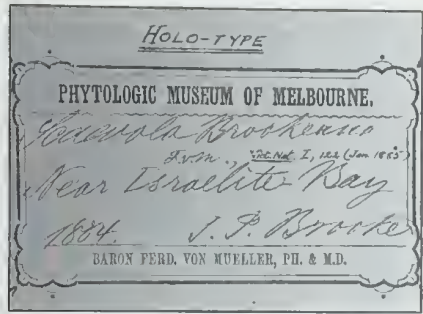 HOLO-TYPE
PHYTOLOGIC MUSEUM OF MELBOURNE.
Scaevola Brookeana
F.v.M., Vict. Nat. I, 122 (Jan 1885)
Near Israelite Bay
1884. J. P. Brooke
BARON FERD. VON MUELLER, PH. & M.D.